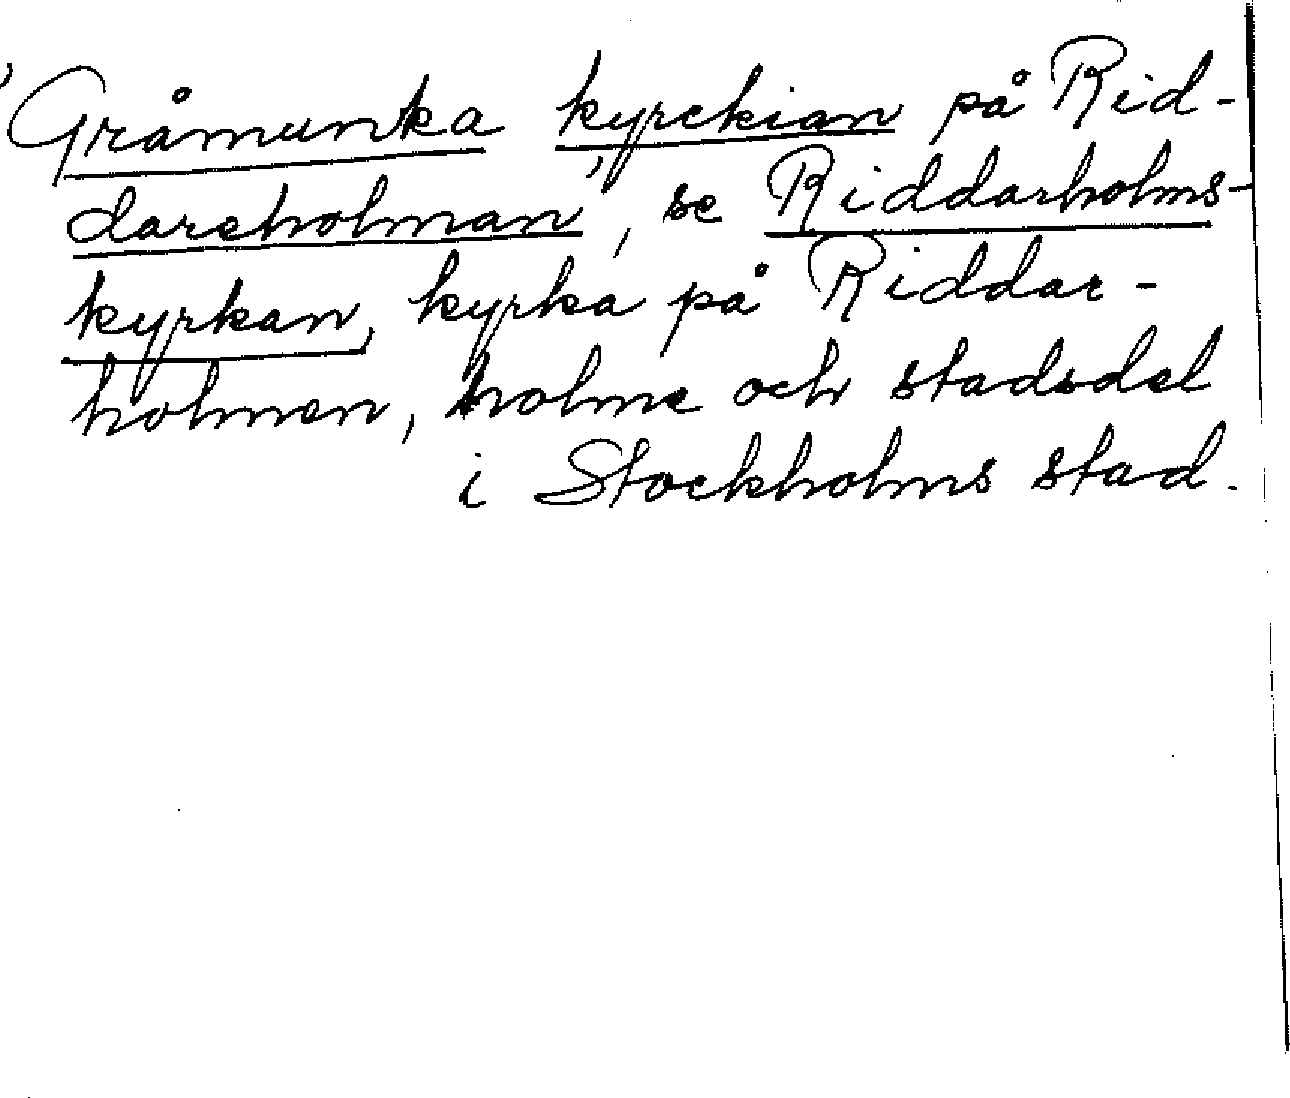 'Gråmunka kyrckian på Rid-
dareholman', se Riddarholms-
kyrkan, kyrka på Riddar-
holmen, holme och stadsdel
i Stockholms stad.